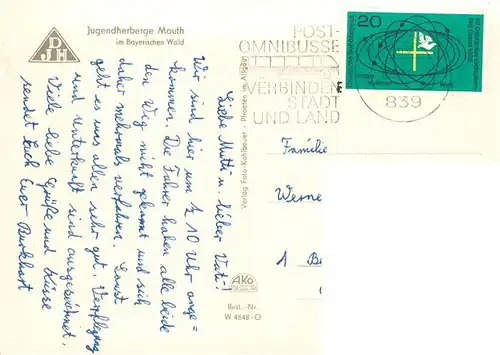 Jugendherberge Mauth
im Bayerischen Wald
DJH
Liebe Mutti u. lieber Vati!
Wir sind hier um ½ 10 Uhr ange=
kommen. Die Fahrer haben alle beide
den Weg nicht gekannt und sich
daher mehrmals verfahren. Sonst
geht es uns allen sehr gut. Verpflegung
und Unterkunft sind ausgezeichnet.
Viele liebe Grüße und Küsse
sendet Euch Euer Burkhart
Verlag Foto-Kohlbauer · Pfronten im Allgäu
AKO
Best.-Nr.
W 4848-O
POST-
OMNIBUSSE
VERBINDEN
STADT
UND LAND
839
20
Familie
Werne
1 Be